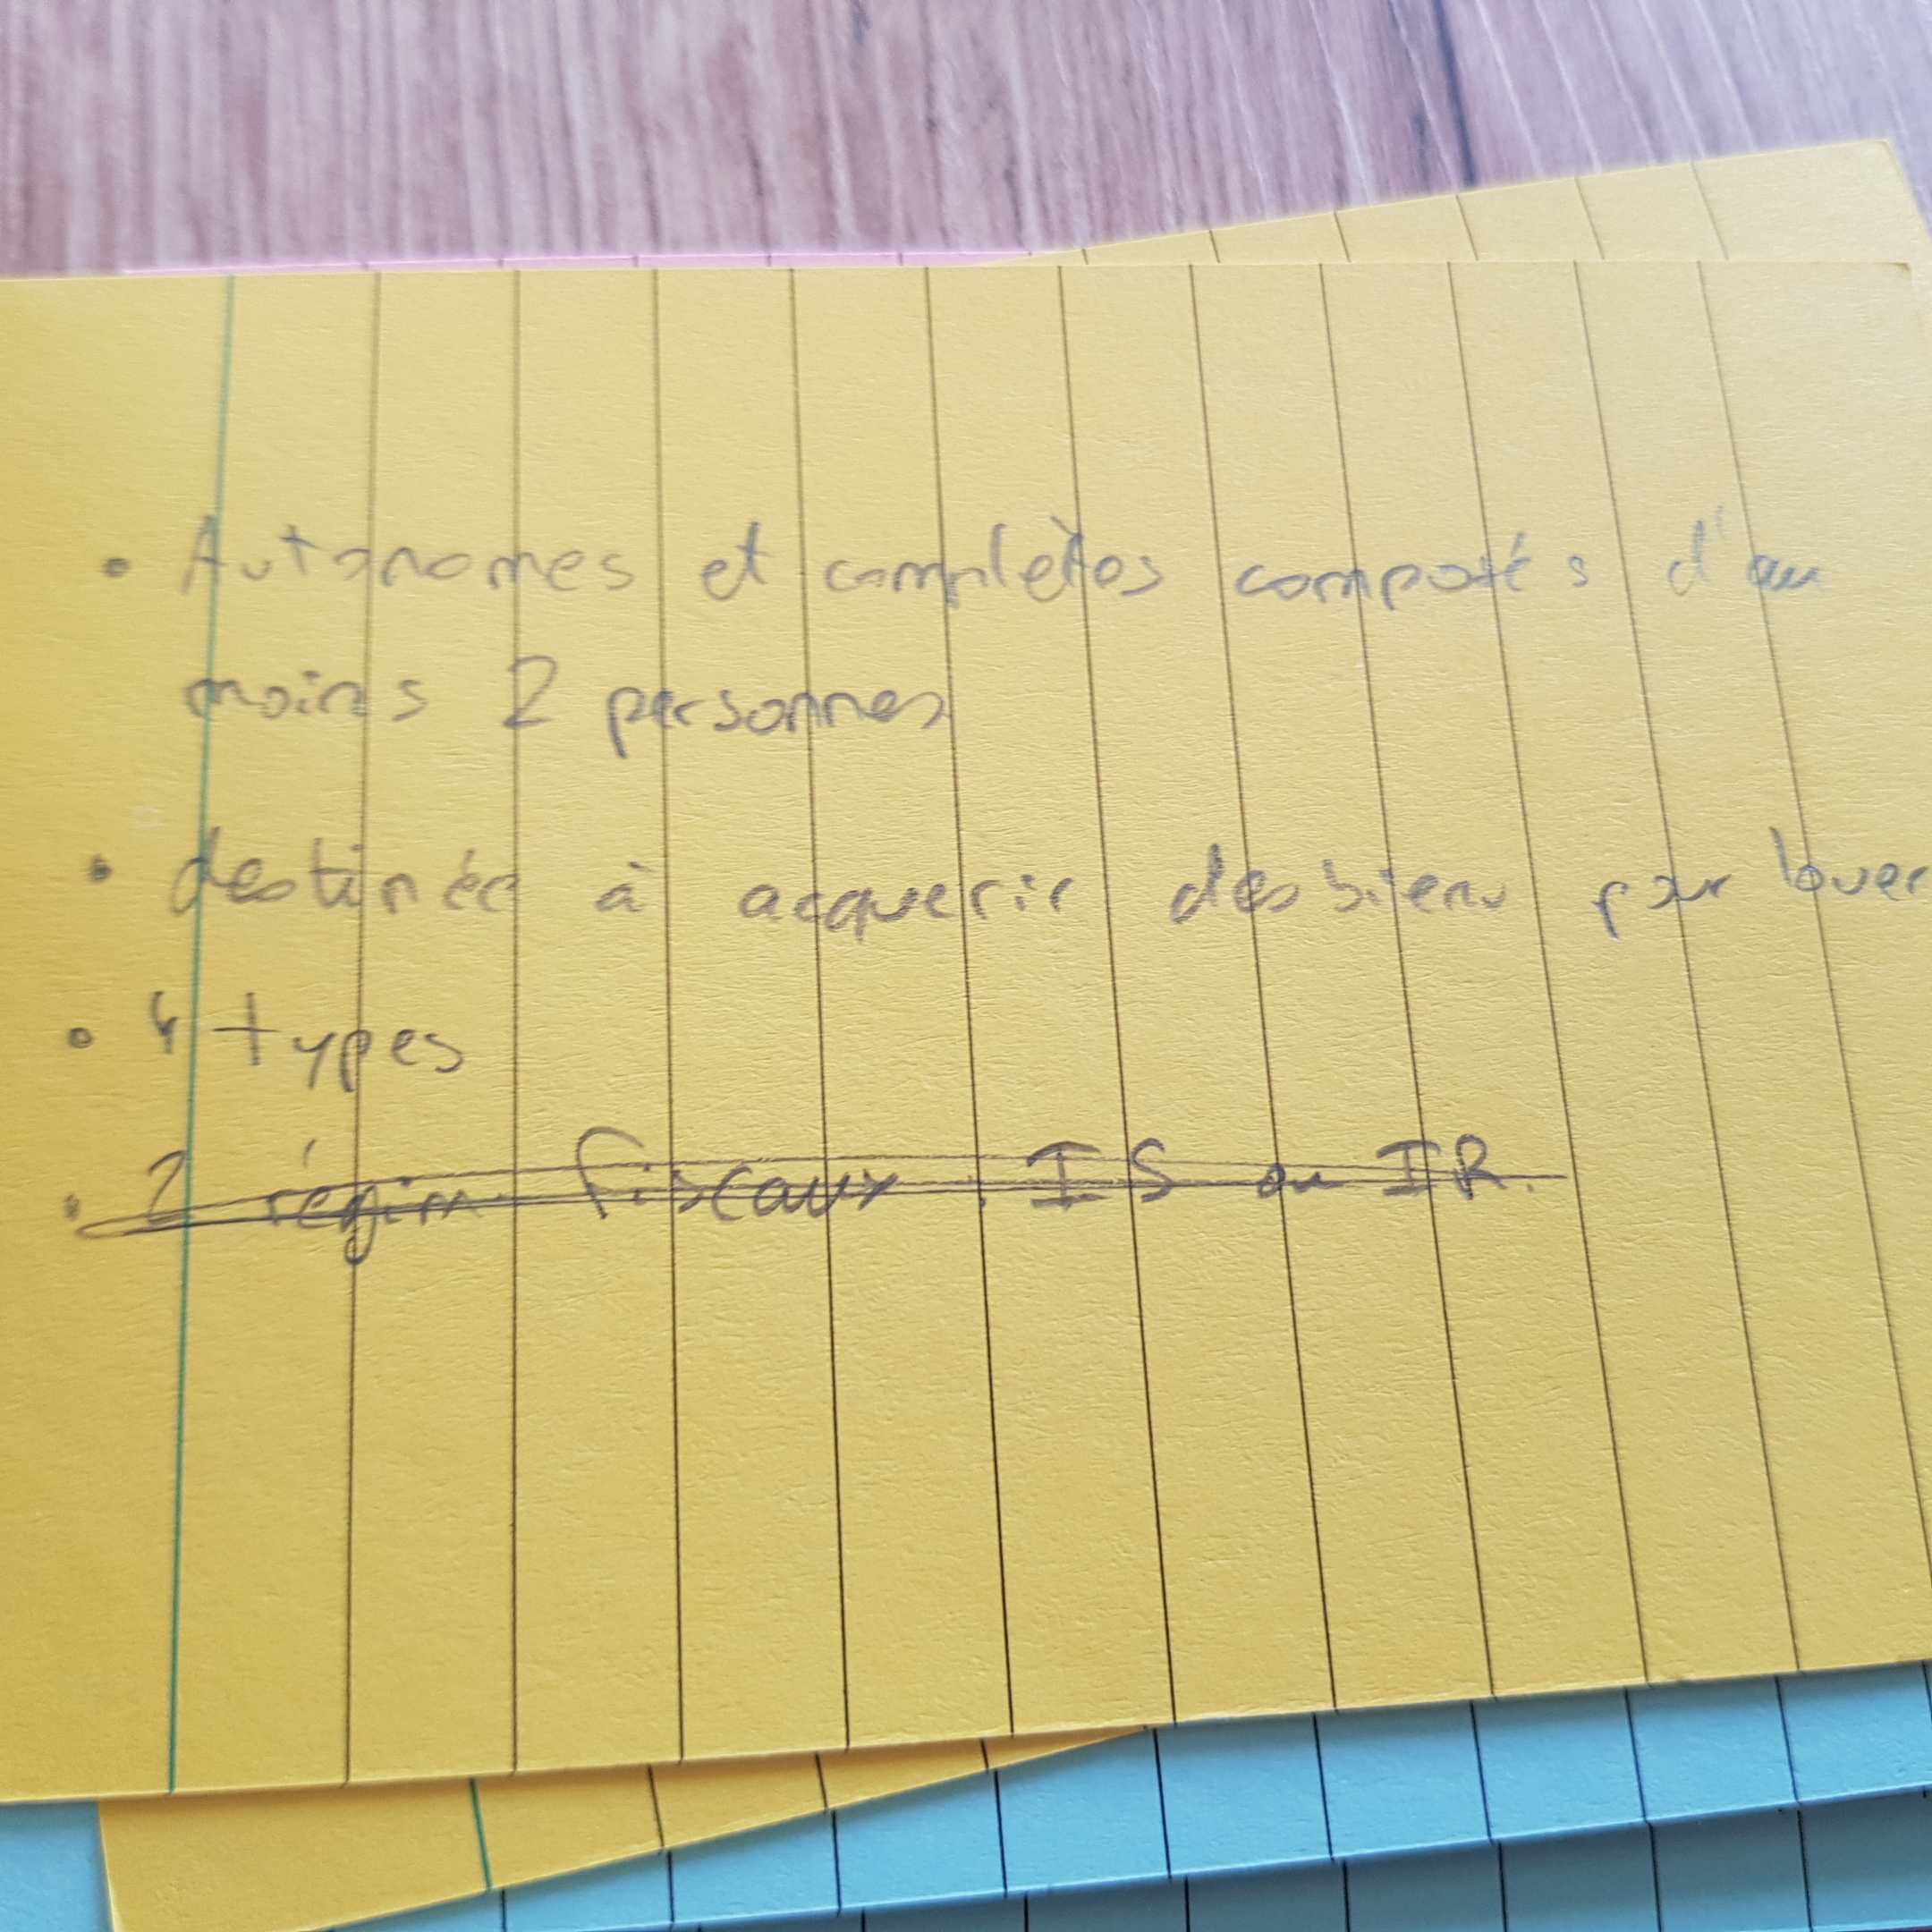 • Autonomes et complètes composés d'au
moins 2 personnes
• destinée à acquerir des biens pour louer
• 4 types
• 2 régim fiscaux : IS ou IR.